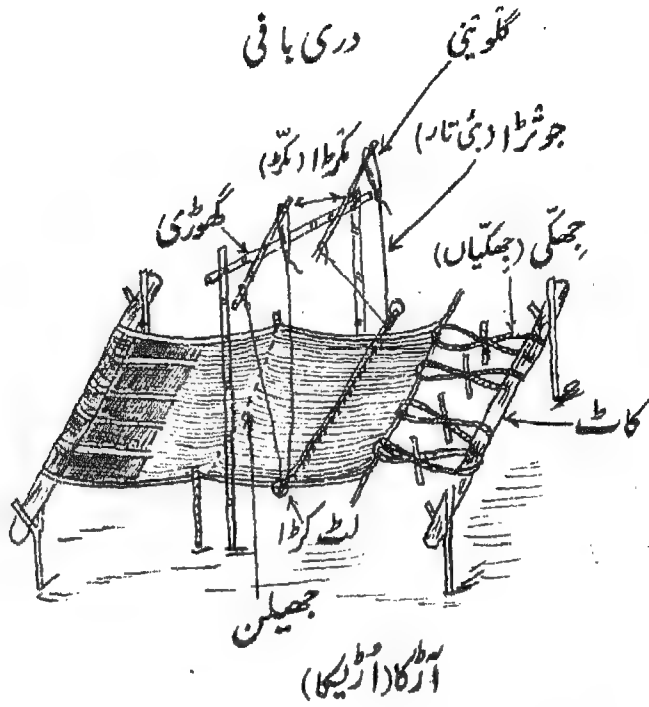 دری بافی
گلوتینی
جوترا (بئی تار)
مکڑا (مکڑ)
گھوڑی
جھکّی (جھکّیاں)
کاٹ
لٹ کڑا
جھیلن
آڑکا (اُڑیکا)